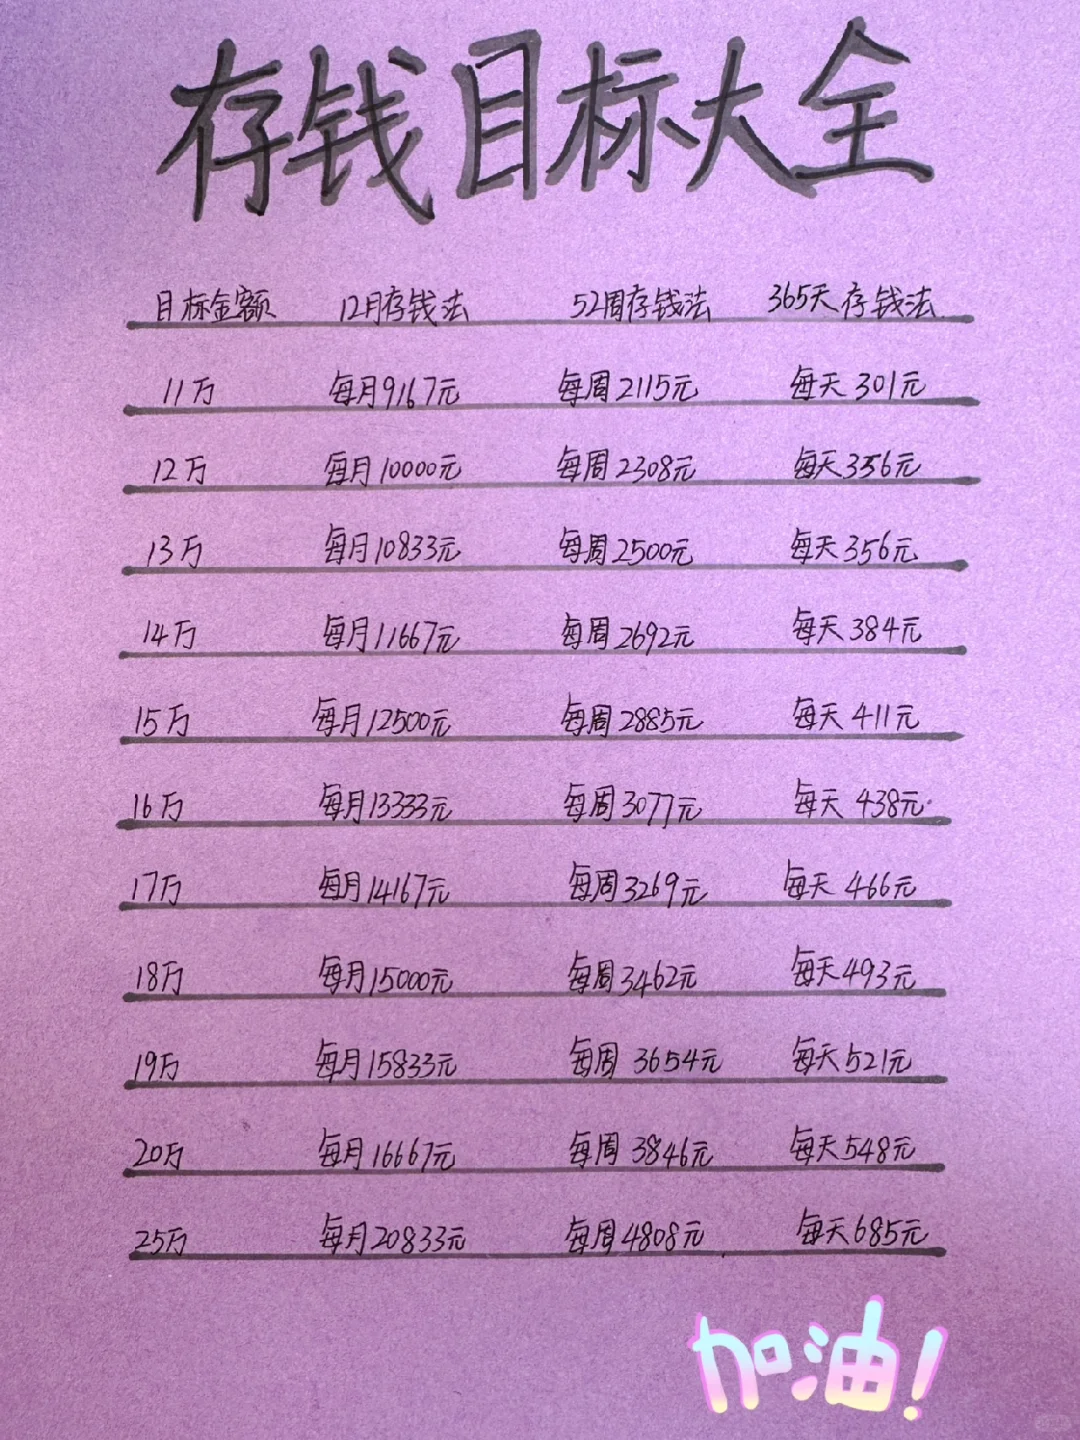 存钱目标大全
目标金额 12月存钱法 52周存钱法 365天存钱法
11万 每月9167元 每周2115元 每天301元
12万 每月10000元 每周2308元 每天356元
13万 每月10833元 每周2500元 每天356元
14万 每月11667元 每周2692元 每天384元
15万 每月12500元 每周2885元 每天411元
16万 每月13333元 每周3077元 每天438元
17万 每月14167元 每周3269元 每天466元
18万 每月15000元 每周3462元 每天493元
19万 每月15833元 每周3654元 每天521元
20万 每月16667元 每周3846元 每天548元
25万 每月20833元 每周4808元 每天685元
加油!